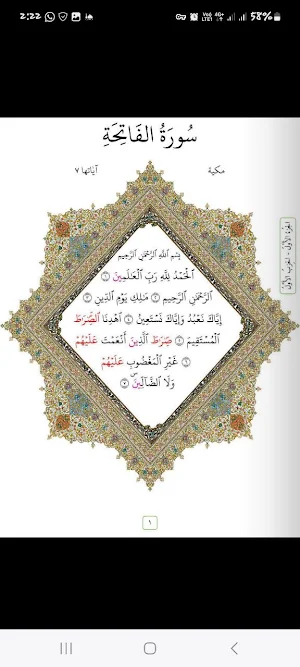 2:22
58%
سُورَةُ الفَاتِحَةِ
مكية
آياتها ٧
الجزء الأول - الحزب الأول
بِسْمِ اللَّهِ الرَّحْمَٰنِ الرَّحِيمِ
الْحَمْدُ لِلَّهِ رَبِّ الْعَٰلَمِينَ ١
الرَّحْمَٰنِ الرَّحِيمِ ٢ مَٰلِكِ يَوْمِ الدِّينِ ٣
إِيَّاكَ نَعْبُدُ وَإِيَّاكَ نَسْتَعِينُ ٤ اهْدِنَا الصِّرَٰطَ
الْمُسْتَقِيمَ ٥ صِرَٰطَ الَّذِينَ أَنْعَمْتَ عَلَيْهُمْ
٦ غَيْرِ الْمَغْضُوبِ عَلَيْهُمْ
وَلَا الضَّآلِّينَ ٧
١